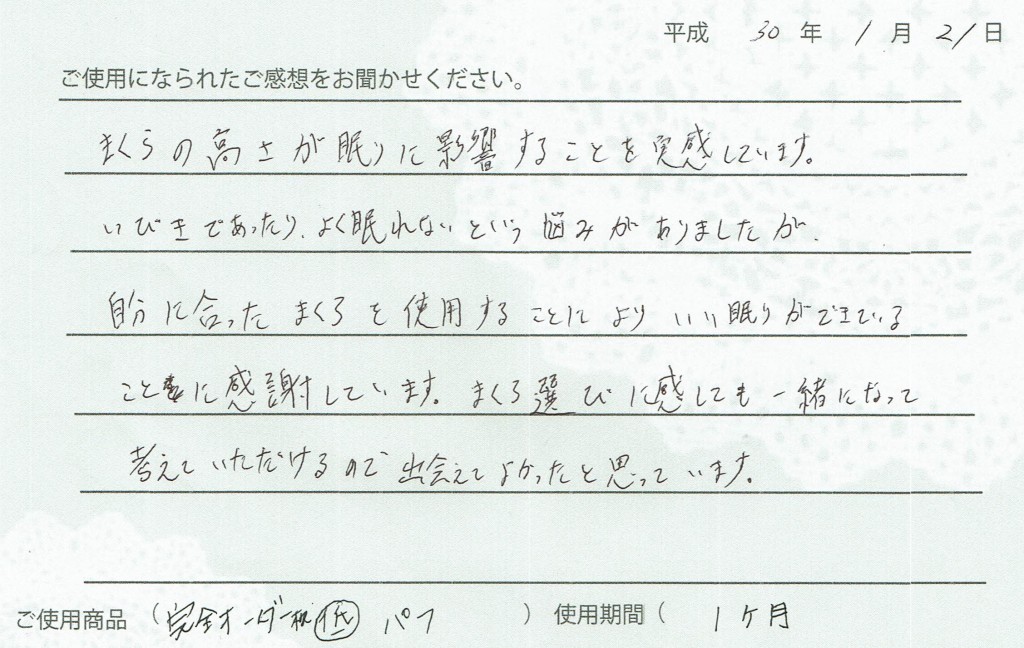 平成 30 年 1 月 21 日
ご使用になられたご感想をお聞かせください。
まくらの高さが眠りに影響することを実感しています。
いびきであったり、よく眠れないという悩みがありましたが、
自分に合ったまくらを使用することによりいい眠りができている
ことに感謝しています。まくら選びに感しても一緒になって
考えていただけるので出会えてよかったと思っています。
ご使用商品 ( 完全オーダー枕 低 パフ ) 使用期間 ( 1ヶ月